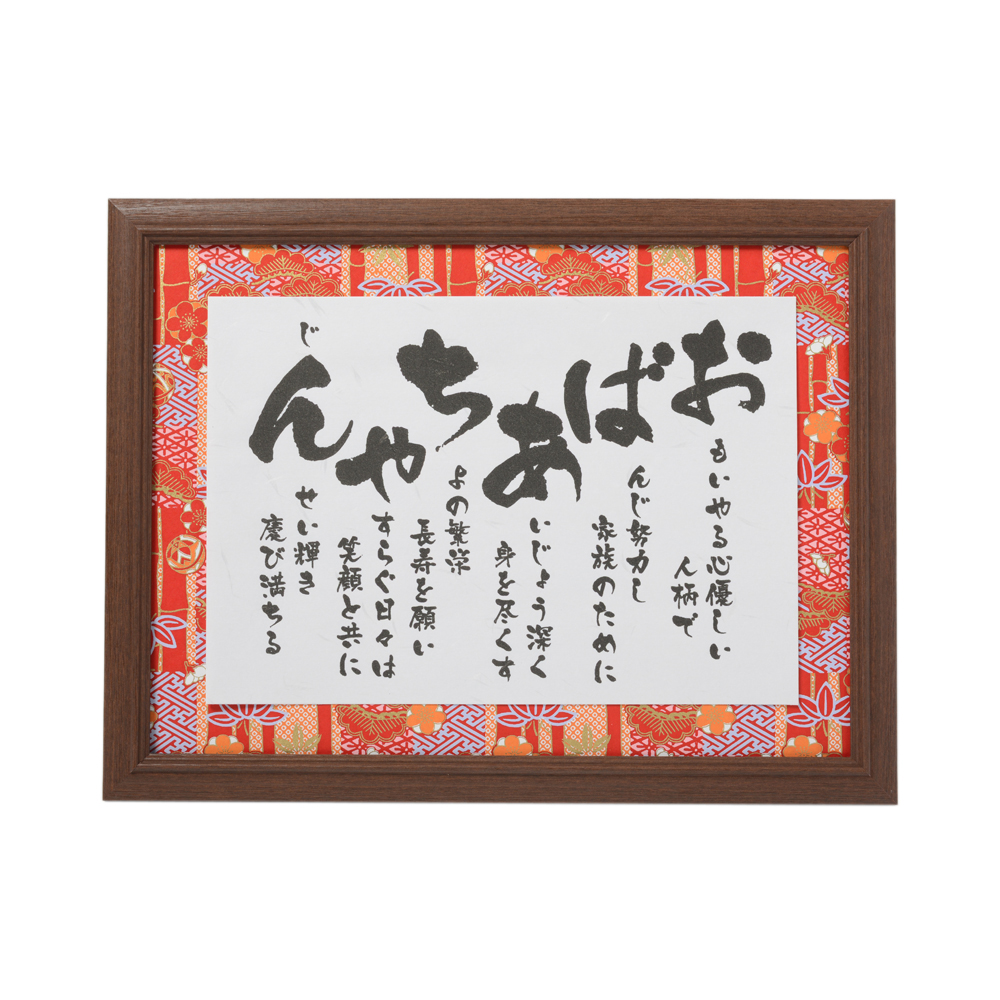 おもいやる心優しい
人柄で
ばんじ努力し
家族のために
あいじょう深く
身を尽くす
ちよの繁栄
長寿を願い
やすらぐ日々は
笑顔と共に
じんせい輝き
慶び満ちる